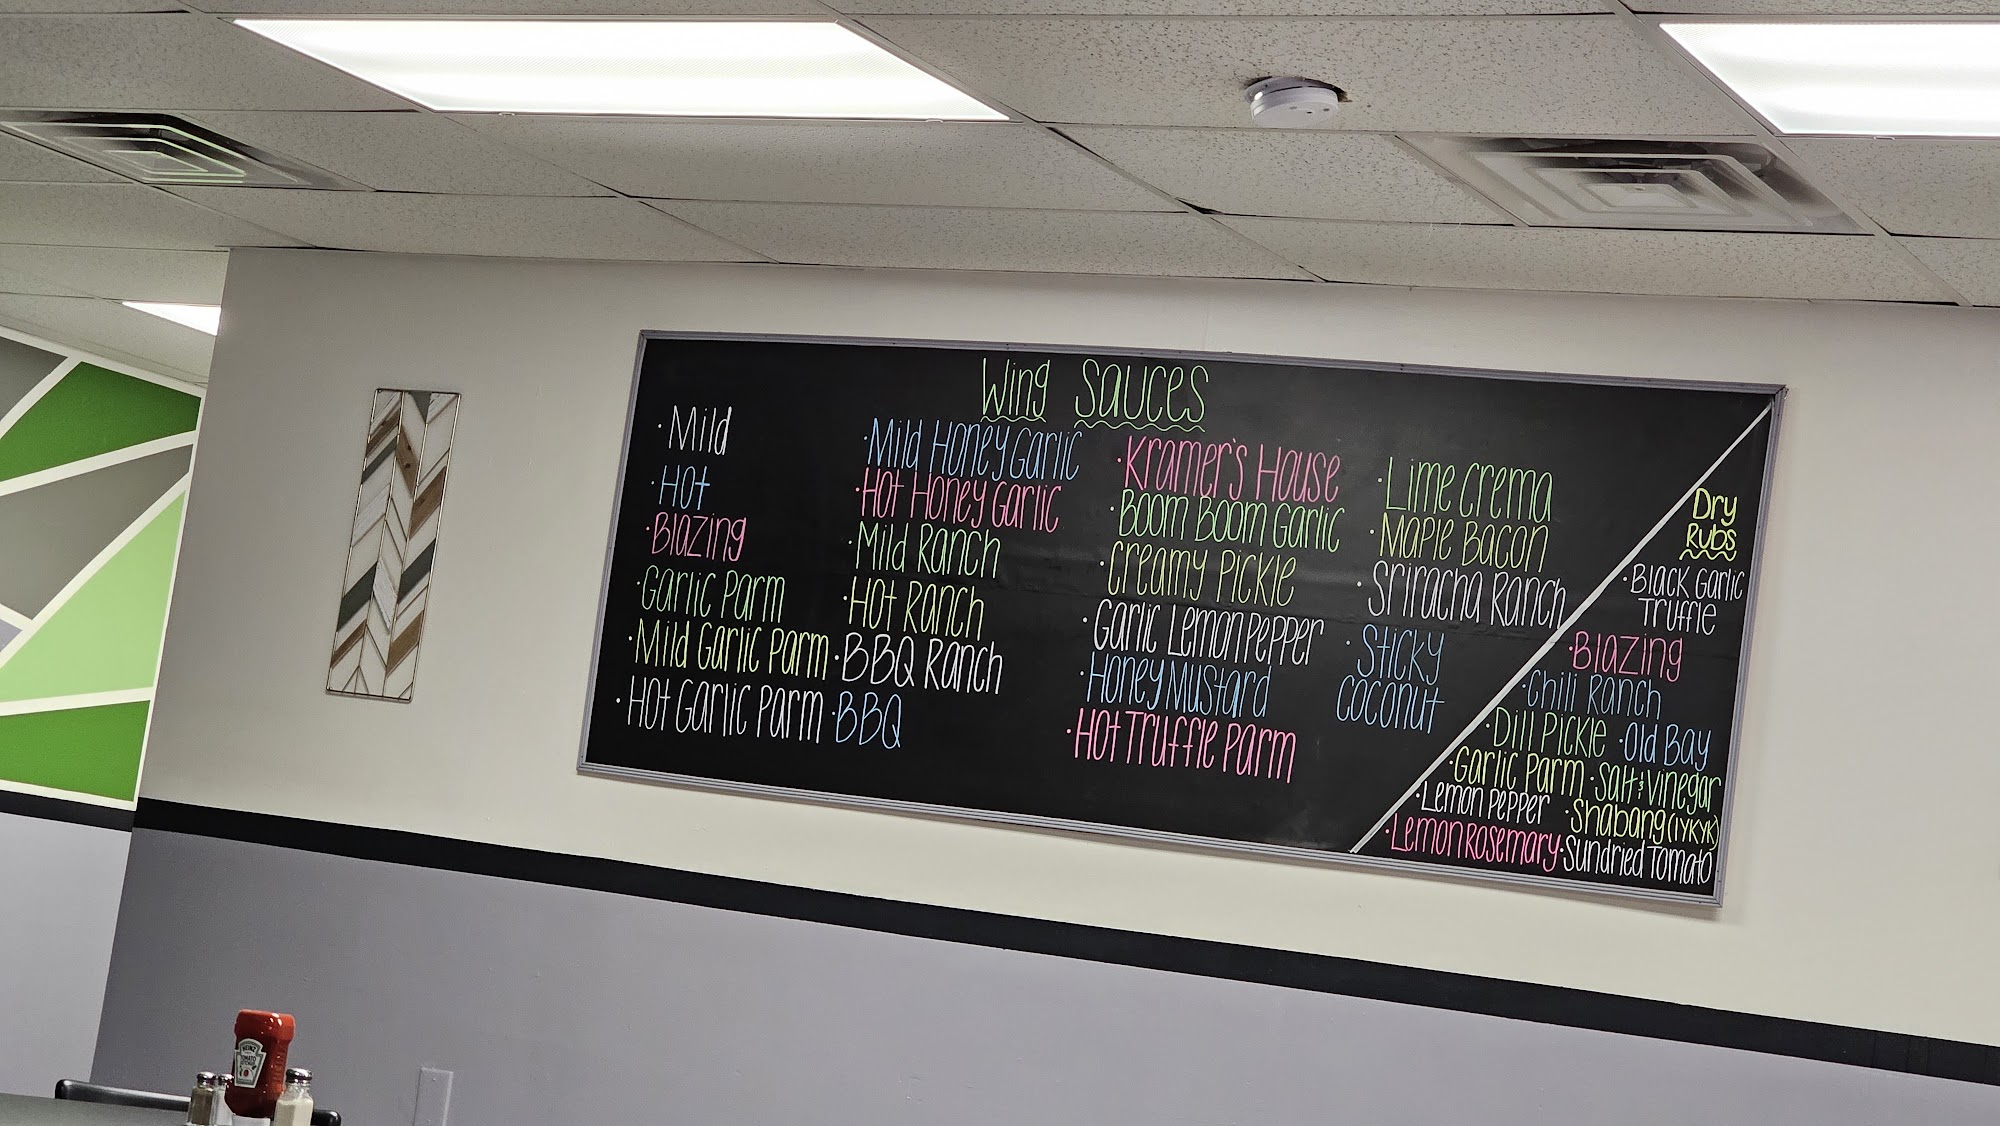 Wing Sauces
· Mild
· Hot
· Blazing
· Garlic Parm
· Mild Garlic Parm
· Hot Garlic Parm
· Mild Honey Garlic
· Hot Honey Garlic
· Mild Ranch
· Hot Ranch
· BBQ Ranch
· BBQ
· Kramer's House
· Boom Boom Garlic
· Creamy Pickle
· Garlic Lemon Pepper
· Honey Mustard
· Hot Truffle Parm
· Lime Crema
· Maple Bacon
· Sriracha Ranch
· Sticky
Coconut
Dry
Rubs
· Black Garlic
Truffle
· Blazing
· Chili Ranch
· Dill Pickle · Old Bay
· Garlic Parm · Salt & Vinegar
· Lemon Pepper · Shabang (IYKYK)
· Lemon Rosemary · Sundried Tomato
HEINZ
TOMATO
KETCHUP